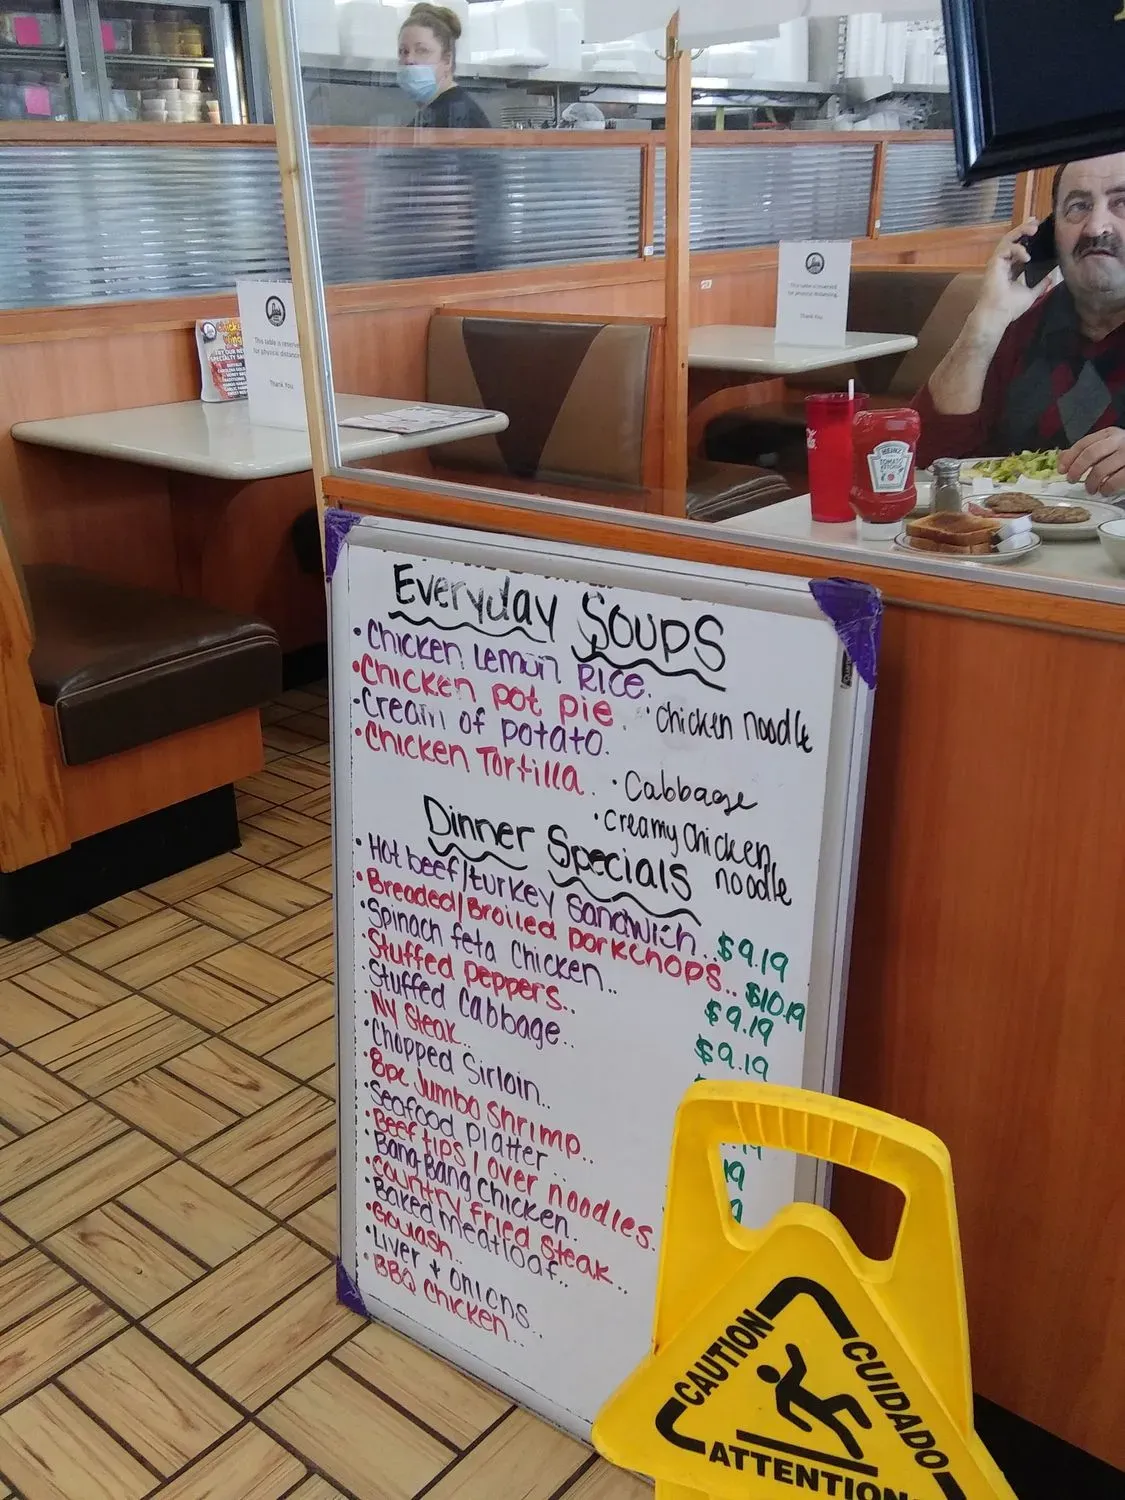 This table is reserved
for physical distancing.
Thank You
This table is reserve
for physical distanc
Thank You
TRY OUR NEW
HEINZ
TOMATO
KETCHUP
Everyday Soups
• Chicken Lemon Rice.
• Chicken pot pie
• Chicken noodle
• Cream of potato.
• Chicken Tortilla.
• Cabbage
• creamy chicken
noodle
Dinner Specials
• Hot beef/turkey sandwich.. $9.19
• Breaded/Broiled porkchops.. $10.19
• Spinach feta Chicken.. $9.19
• Stuffed peppers.. $9.19
• Stuffed Cabbage..
• NY Steak..
• Chopped Sirloin..
• 8pc Jumbo Shrimp..
• Seafood platter
• Beef tips / over noodles.
• Bang Bang Chicken.
• Country Fried Steak..
• Baked meatloaf..
• Goulash..
• Liver + onions..
• BBQ Chicken...
CAUTION
CUIDADO
ATTENTION